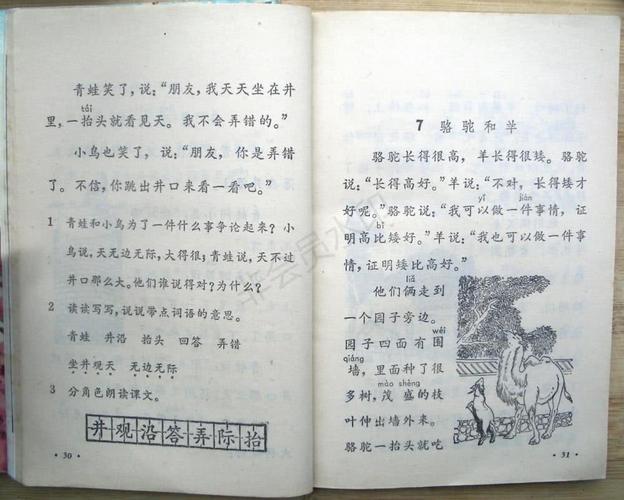 青蛙笑了，说：“朋友，我天天坐在井
tái
里，一抬头就看见天。我不会弄错的。”
小鸟也笑了，说：“朋友，你是弄错
了。不信，你跳出井口来看一看吧。”
1 青蛙和小鸟为了一件什么事争论起来？小
鸟说，天无边无际，大得很；青蛙说，天不过
井口那么大。他们谁说得对？为什么？
2 读读写写，说说带点词语的意思。
青蛙 井沿 抬头 回答 弄错
坐井观天 无边无际
3 分角色朗读课文。
井观沿答弄际抬
·30·
7 骆驼和羊
骆驼长得很高，羊长得很矮。骆驼
说：“长得高好。”羊说：“不对，长得矮才
yǐ jiàn
好呢。”骆驼说：“我可以做一件事情，证
bǐ
明高比矮好。”羊说：“我也可以做一件事
情，证明矮比高好。”
liǎ
他们俩走到
一个园子旁边。
wéi
园子四面有围
qiáng
墙，里面种了很
mào shèng
多树，茂盛的枝
叶伸出墙外来。
骆驼一抬头就吃
·31·
非会员水印